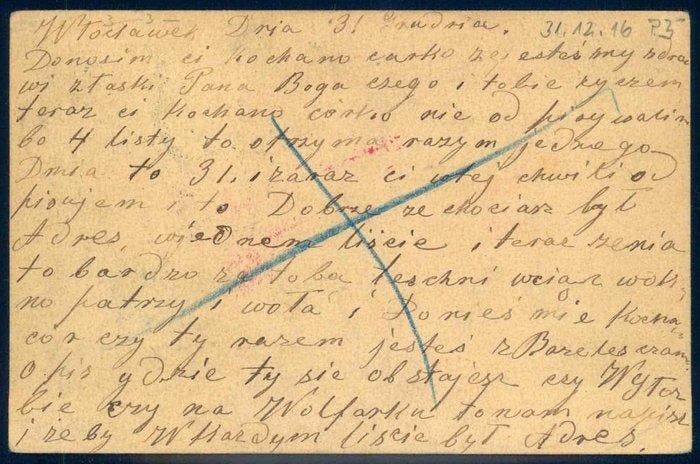 Włocławek Dnia 31 Grudnia. 31.12.16
Donosim ci kochano curko ze jesteśmy zdro
wi z łaski Pana Boga czego i tobie zyczem
teraz ci kochano córko nie od pisywalim
bo 4 listy to otrzyma razym jednego
Dnia to 31. i zaraz ci w tej chwili od
pisujem i to Dobrze ze chociasz był
Adres, w jednem liście i teraz zenia
to bardzo za tobą teschni wciąz w ok
no patrzy i woła i Donieś mie Kocha
cór czy ty razem jesteś z
Opis gdzie ty sie obstajesz czy
bie czy na Wolfarku to nam napisz
i zeby W kazdym liście był Adres.